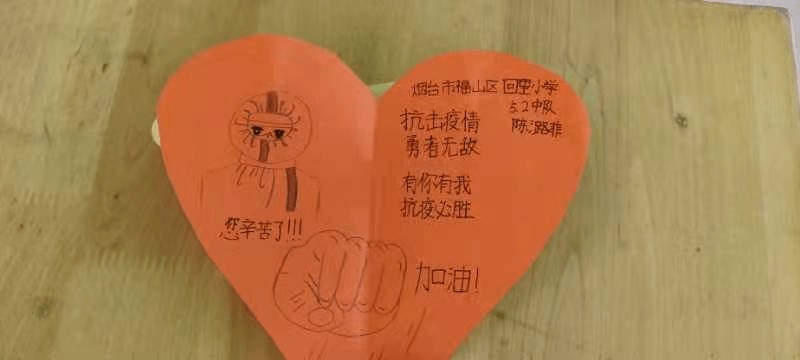 您辛苦了!!!
烟台市福山区回里小学
5.2中队
陈潞菲
抗击疫情
勇者无敌
有你有我
抗疫必胜
加油!